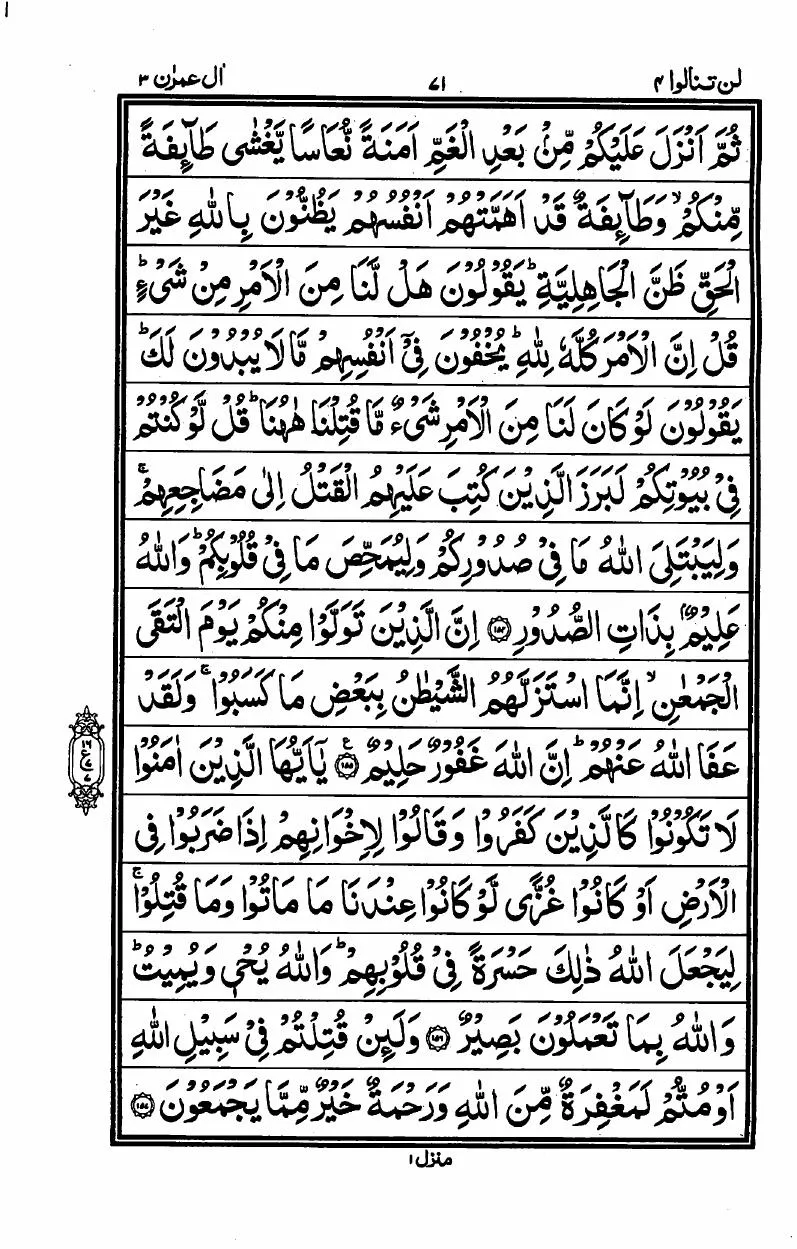 لن تنالوا ۴
۷۱
اٰل عمرٰن ۳
ثُمَّ اَنْزَلَ عَلَيْكُمْ مِّنْۢ بَعْدِ الْغَمِّ اَمَنَةً نُّعَاسًا يَّغْشٰى طَآئِفَةً
مِّنْكُمْ ۙ وَطَآئِفَةٌ قَدْ اَهَمَّتْهُمْ اَنْفُسُهُمْ يَظُنُّوْنَ بِاللّٰهِ غَيْرَ
الْحَقِّ ظَنَّ الْجَاهِلِيَّةِ ؕ يَقُوْلُوْنَ هَلْ لَّنَا مِنَ الْاَمْرِ مِنْ شَىْءٍ ؕ
قُلْ اِنَّ الْاَمْرَ كُلَّهٗ لِلّٰهِ ؕ يُخْفُوْنَ فِىْۤ اَنْفُسِهِمْ مَّا لَا يُبْدُوْنَ لَكَ ؕ
يَقُوْلُوْنَ لَوْ كَانَ لَنَا مِنَ الْاَمْرِ شَىْءٌ مَّا قُتِلْنَا هٰهُنَا ؕ قُلْ لَّوْ كُنْتُمْ
فِىْ بُيُوْتِكُمْ لَبَرَزَ الَّذِيْنَ كُتِبَ عَلَيْهِمُ الْقَتْلُ اِلٰى مَضَاجِعِهِمْ ۚ
وَلِيَبْتَلِىَ اللّٰهُ مَا فِىْ صُدُوْرِكُمْ وَلِيُمَحِّصَ مَا فِىْ قُلُوْبِكُمْ ؕ وَاللّٰهُ
عَلِيْمٌۢ بِذَاتِ الصُّدُوْرِ ﴿۱۵۴﴾ اِنَّ الَّذِيْنَ تَوَلَّوْا مِنْكُمْ يَوْمَ الْتَقَى
الْجَمْعٰنِ ۙ اِنَّمَا اسْتَزَلَّهُمُ الشَّيْطٰنُ بِبَعْضِ مَا كَسَبُوْا ۚ وَلَقَدْ
عَفَا اللّٰهُ عَنْهُمْ ؕ اِنَّ اللّٰهَ غَفُوْرٌ حَلِيْمٌ ﴿۱۵۵﴾ يٰۤاَيُّهَا الَّذِيْنَ اٰمَنُوْا
لَا تَكُوْنُوْا كَالَّذِيْنَ كَفَرُوْا وَقَالُوْا لِاِخْوَانِهِمْ اِذَا ضَرَبُوْا فِى
الْاَرْضِ اَوْ كَانُوْا غُزًّى لَّوْ كَانُوْا عِنْدَنَا مَا مَاتُوْا وَمَا قُتِلُوْا ۚ
لِيَجْعَلَ اللّٰهُ ذٰلِكَ حَسْرَةً فِىْ قُلُوْبِهِمْ ؕ وَاللّٰهُ يُحْىٖ وَيُمِيْتُ ؕ
وَاللّٰهُ بِمَا تَعْمَلُوْنَ بَصِيْرٌ ﴿۱۵۶﴾ وَلَئِنْ قُتِلْتُمْ فِىْ سَبِيْلِ اللّٰهِ
اَوْ مُتُّمْ لَمَغْفِرَةٌ مِّنَ اللّٰهِ وَرَحْمَةٌ خَيْرٌ مِّمَّا يَجْمَعُوْنَ ﴿۱۵۷﴾
۱۶
ع
۷
۷
منزل ۱